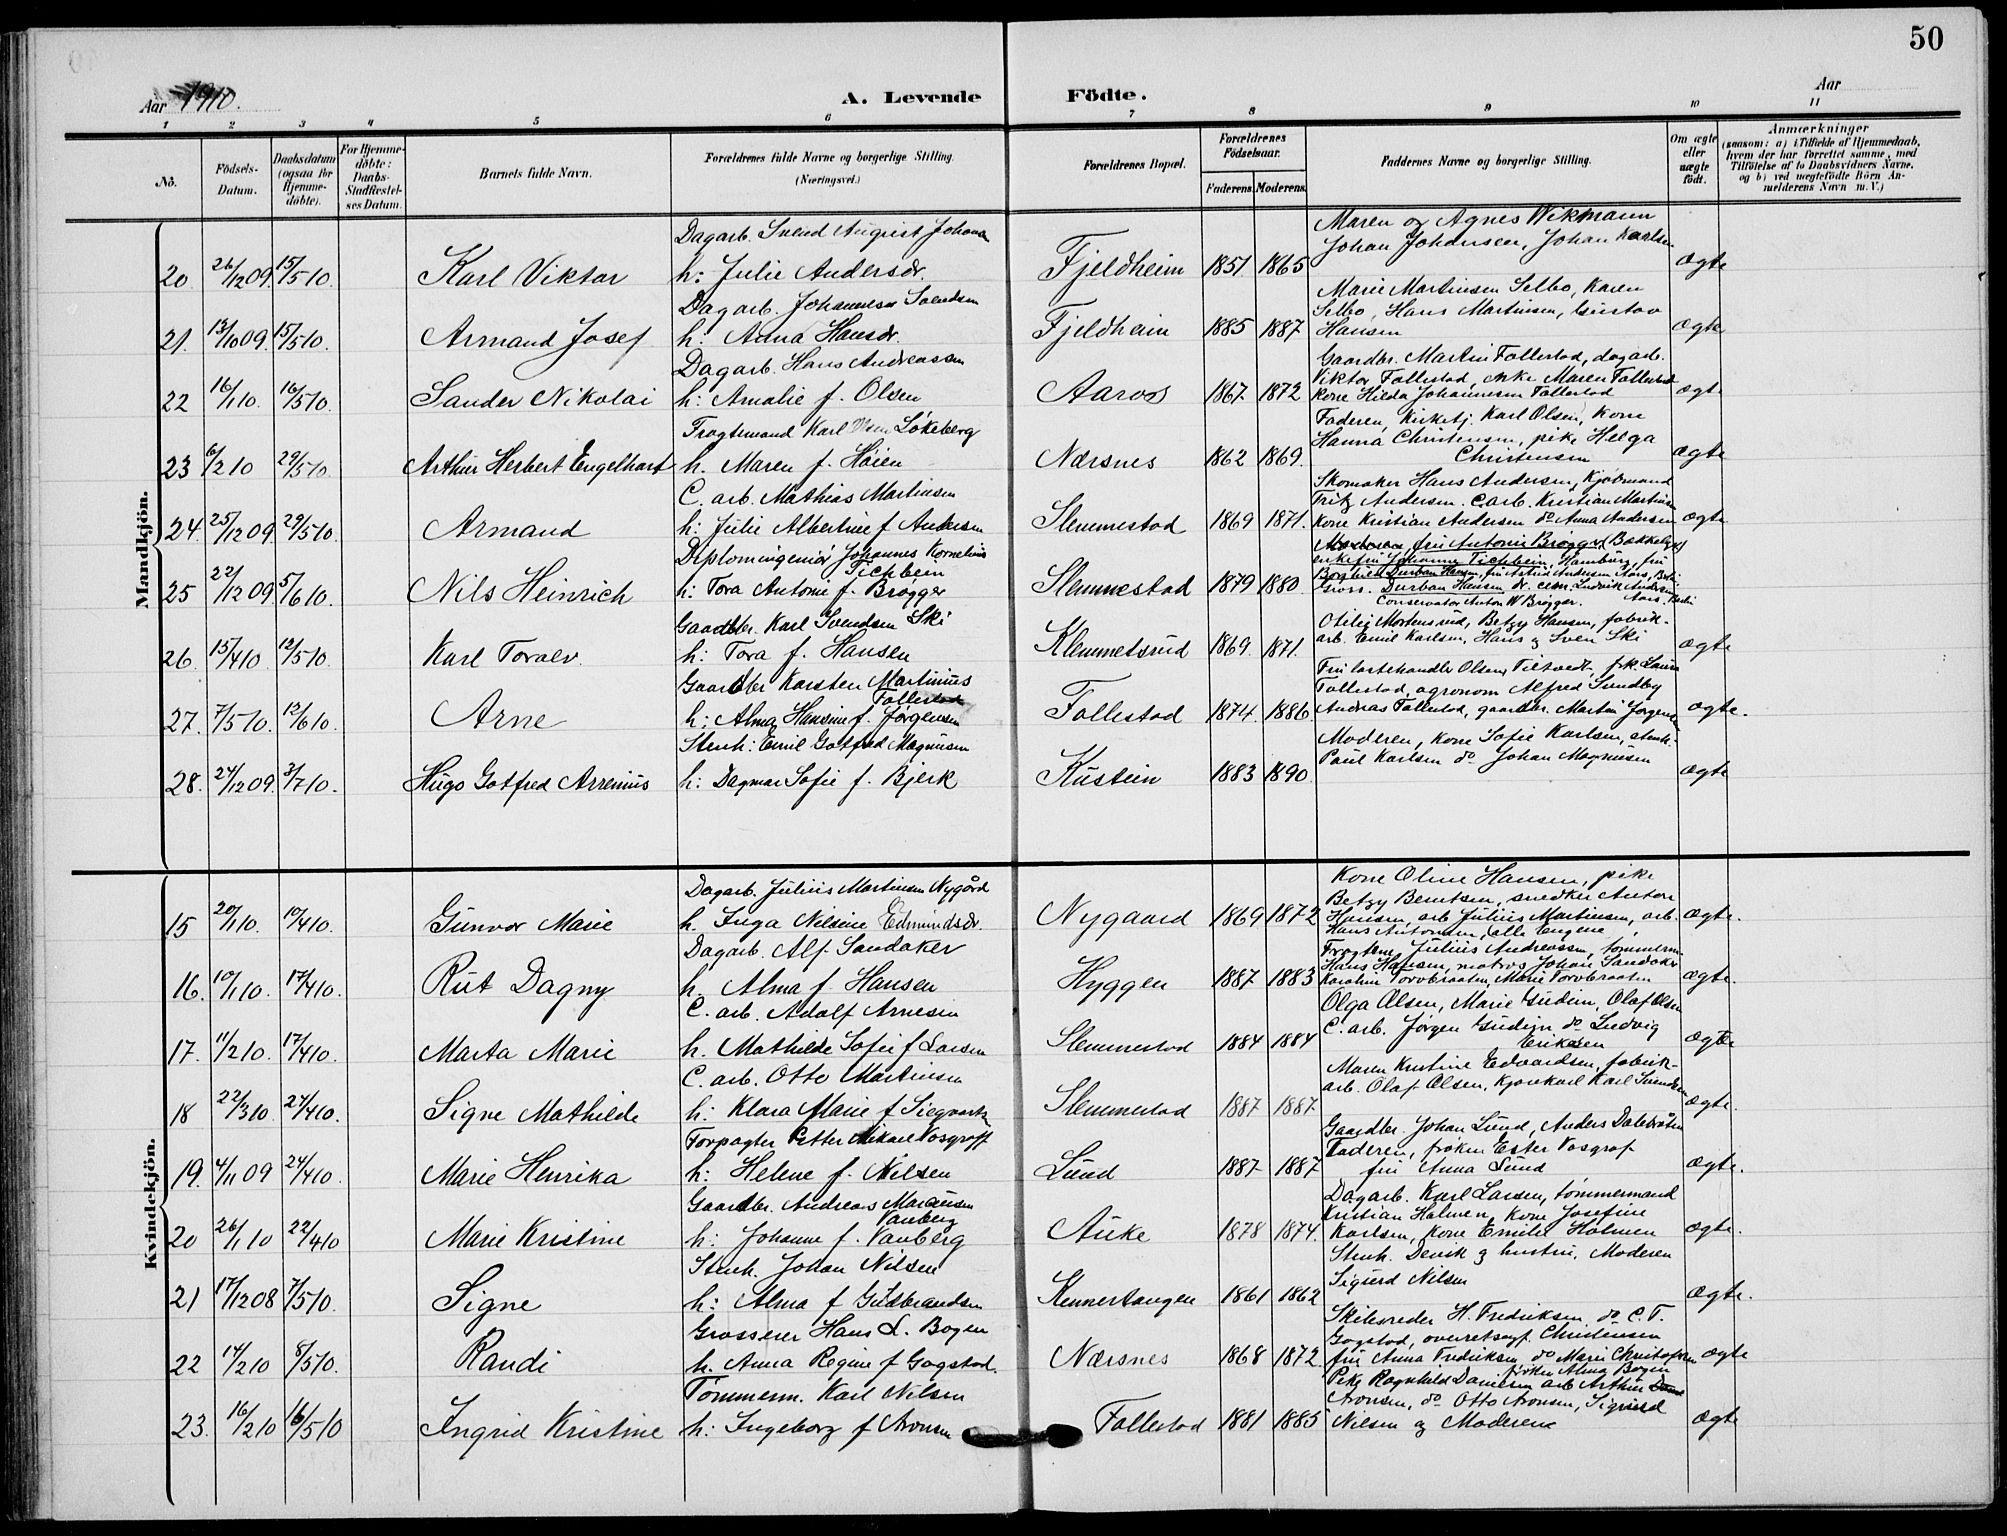 50
Aar 1910.
A. Levende Födte.
Aar
1 2 3 4 5 6 7 8 9 10 11
No.
Födsels-Datum.
Daabsdatum (ogsaa for Hjemmedöbte).
For Hjemmedöbte: Daabs-Stadfæstelses Datum.
Barnets fulde Navn.
Forældrenes fulde Navne og borgerlige Stilling. (Næringsvei.)
Forældrenes Bopæl.
Forældrenes Födselsaar.
Faderens. Moderens.
Faddernes Navne og borgerlige Stilling.
Om ægte eller uægte födt.
Anmærkninger (saasom: a) i Tilfælde af Hjemmedaab, hvem der har forrettet samme, med Tilföielse af to Daabsvidners Navne, og b) ved uægtefödte Börn Anmelderens Navn m. V.)
Mandkjön.
Dagarb. Svend August Johans
Maren og Agnes Wikmann
Johan Johansen, Johan Karlsen
20 26/12 09. 15/5 10. Karl Viktor h: Julie Andersdr. Fjeldheim 1851 1865 ægte
Dagarb. Johannes Svendsen
Marie Martinsen Selbo, Karen
Selbo, Hans Martinsen, Gustav
21. 13/10 09. 15/5 10. Armand Josef h: Anna Hansdr. Fjeldheim 1885 1887 Hansen ægte
Dagarb. Hans Andreassen
Gaardbr. Martin Follestad, dagarb.
Viktor Follestad, enke Maren Follestad
22 16/1 10. 16/5 10. Sander Nikolai h: Amalie f. Olsen Aaros 1867 1872 Kone Hilda Johannesen Follestad ægte
Fragtemand Karl Olsen Løkeberg
Faderen, Kirketj. Karl Olsen, Kone
Hanna Christensen, pike Helga
23 6/2 10 29/5 10. Arthur Herbert Engelhart h. Maren f. Høien Nærsnes 1862 1869. Christensen ægte
C. arb. Mathias Martinsen
Skomaker Hans Andersen, Kjøbmand
Fritz Andersen. C arb. Kristian Martinsen
24. 25/12 09. 29/5 10. Armand h: Julie Albertine f Andersen Slemmestad 1869 1871. Kone Kristian Andersen do Anna Andersen ægte
Diplomingeniør Johannes Kornelius
Tichbein
Moderen, fru Antonie Brøgger,
enkefru Johanne Tichbein, Hamburg, fru
25 22/12 09. 5/6 10. Nils Heinrich h: Tora Antonie f. Brøgger Slemmestad 1879 1880
Gross. Durban Hansen, dr. Ludvik Andersen
Conservator Anton W Brøgger.
Gaardbr. Karl Svendsen Ski
Otilie Mortensrud, Betzy Hansen, fabrik-
arb. Emil Karlsen, Hans og Sven Ski
26. 15/4 10. 12/5 10. Karl Toralv. h: Tora f. Hansen Klemmetsrud 1869. 1871. ægte
Gaardbr Karsten Martinius
Follestad
Olsen, Tiltvedt, frk. Laura
Follestad, agronom Alfred Sundby
27. 7/5 10. 12/6 10. Arne h: Alma Hansine f. Jørgensen Follestad 1874. 1886. Andreas Follestad, gaardbr. Martin Jørgensen ægte.
Stenh: Emil Gotfred Magnusen
Moderen, Kone Sofie Karlsen, stenh.
Paul Karlsen do Johan Magnusen
28. 24/12 09. 3/7 10. Hugo Gotfred Arrenius h: Dagmar Sofie f. Bjerk Kustein 1883 1890. ægte
Kvindekjön.
Dagarb. Julius Martinsen Nygård
Kone Oline Hansen, pike
Betzy Berntsen, snedker Anton
15 20/1 10. 10/4 10. Gunvor Marie h. Inga Nilsine Edmundsdr. Nygaard 1869 1872 Hansen, arb. Julius Martinsen, arb. ægte.
Hans Antonsen, alle Engene
Dagarb. Alf Sandaker
Fragtem. Julius Andreassen, tømmerm.
Hans Hansen, matros Johan Sandaker
16. 10/1 10. 17/4 10. Rut Dagny h. Alma f. Hansen Hyggen 1887 1883 Karoline Torvbraaten, Marie Torvbraaten ægte.
C. arb. Adolf Arnesen
Olga Olsen, Marie Gudim, Olaf Olsen
C. arb. Jørgen Gudim do Ludvig
17. 11/2 10. 17/4 10. Marta Marie h. Mathilde Sofie f Larsen Slemmestad 1884 1884 Eriksen ægte
C. arb. Otto Martinsen
Maren Kristine Edvardsen, fabrik-
arb. Olaf Olsen, Kjørekarl Karl Svendsen
18 22/3 10. 24/4 10. Signe Mathilde h: Klara Marie f Siegvarts Slemmestad 1887 1887. ægte.
Forpagter Petter Mikael Vosgraff
Gaardbr. Johan Lund, Anders Dalsbråten
Faderen, frøken Ester Vosgraf
19. 4/11 09 24/4 10. Marie Henrika h: Helene f. Nilsen Lund 1887 1887 fru Anna Lund ægte.
Gaardbr. Andreas Marcusen
Vauberg
Dagarb. Karl Larsen, tømmermand
Kristian Holmen, Kone Josefine
20 26/1 10 22/4 10 Marie Kristine h: Johanne f. Vauberg Auke 1878 1874. Karlsen, Kone Emilie Holmen ægte.
Stenh. Johan Nilsen
Stenh. Devik og hustru, Moderen
Sigurd Nilsen
21 17/12 08 7/5 10. Signe h: Alma f Gudbrandsen Kinnertangen 1861 1862 ægte.
Grosserer Hans L. Bogen
Skibsreder H. Fredriksen do C. T.
Gogstad, overretssagf. Christensen
22 14/2 10 8/5 10. Randi h. Anna Regine f Gogstad. Nærsnes 1868 1872. fru Anna Fredriksen do Marie Christofersen ægte
frøken Alma Bogen
Tømmerm. Karl Nilsen
Pike Ragnhild Danielsen arb Arthur
Aronsen, do Otto Aronsen, Sigurd
23. 16/2 10 16/5 10 Ingrid Kristine h: Ingeborg f Aronsen Follestad 1881 1885 Nilsen og Moderene ægte